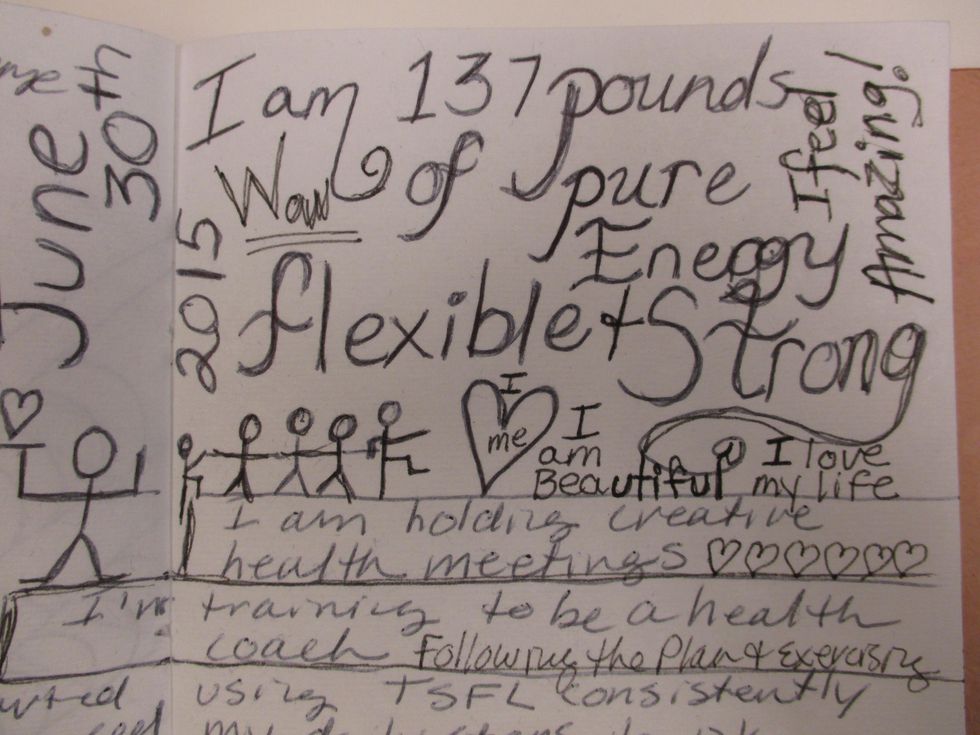 June
30th
2015
I am 137 pounds
of pure
Energy
Wow
I feel
Amazing!
flexible + Strong
I
me
I
am
Beautiful
I love
my life
I am holding creative
health meetings
I'm training to be a health
coach Following the Plan & Exercising
using TSFL consistently